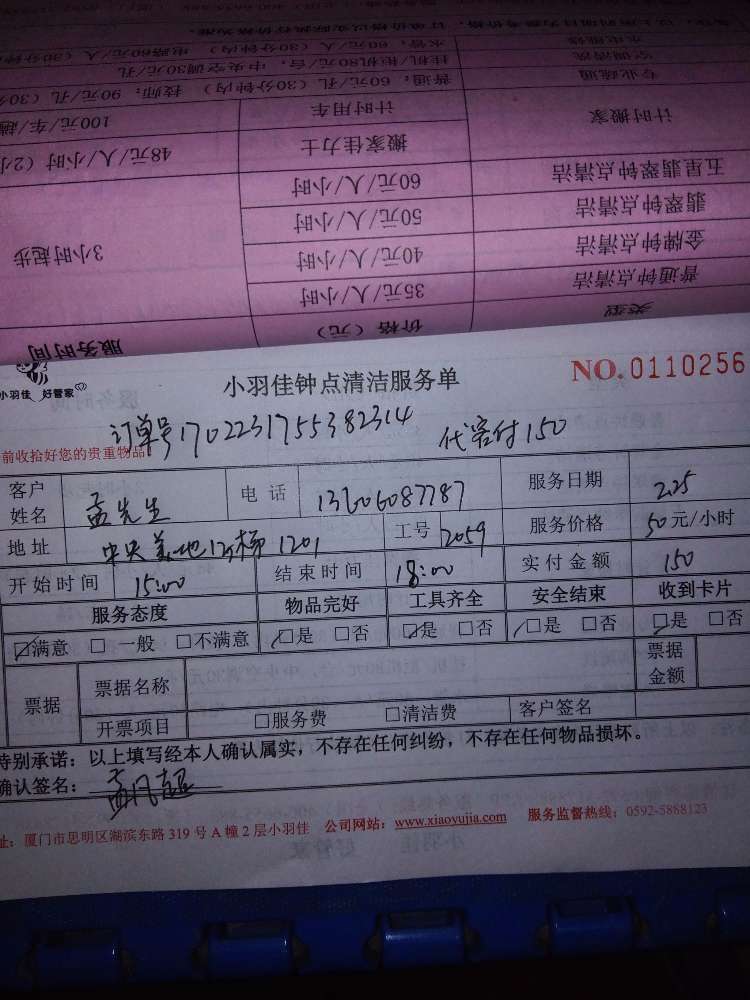 注：以上服务项目为参考价格，订单价格以实际执行价格为准。
水电维修 水管：60元/人（30分钟内） 电路60元/人（30分钟
空调清洗 挂机/柜机80元/台，中央空调30元/孔
专业疏通 普通：60元/孔（30分钟内） 技师：90元/孔（30分
计时搬家 计时用车 100元/车/趟
搬家佳力士 48元/人/小时（2小
五星翡翠钟点清洁 60元/人/小时
翡翠钟点清洁 50元/人/小时 3小时起步
金牌钟点清洁 40元/人/小时
普通钟点清洁 35元/人/小时
类型 价格（元） 服务时间
小羽佳 好管家
小羽佳钟点清洁服务单 NO. 0110256
订单号1702231755382314 代客付150
前收拾好您的贵重物品
客户姓名 孟先生 电话 13606087787 服务日期 2.25
地址 中央美地12栋1201 工号 2059 服务价格 50元/小时
开始时间 15:00 结束时间 18:00 实付金额 150
服务态度 物品完好 工具齐全 安全结束 收到卡片
☑满意 □一般 □不满意 ☑是 □否 ☑是 □否 ☑是 □否 ☑是 □否
票据 票据名称 票据金额
开票项目 □服务费 □清洁费 客户签名
特别承诺：以上填写经本人确认属实，不存在任何纠纷，不存在任何物品损坏。
确认签名：
址：厦门市思明区湖滨东路319号A幢2层小羽佳 公司网站：www.xiaoyujia.com 服务监督热线：0592-5888123